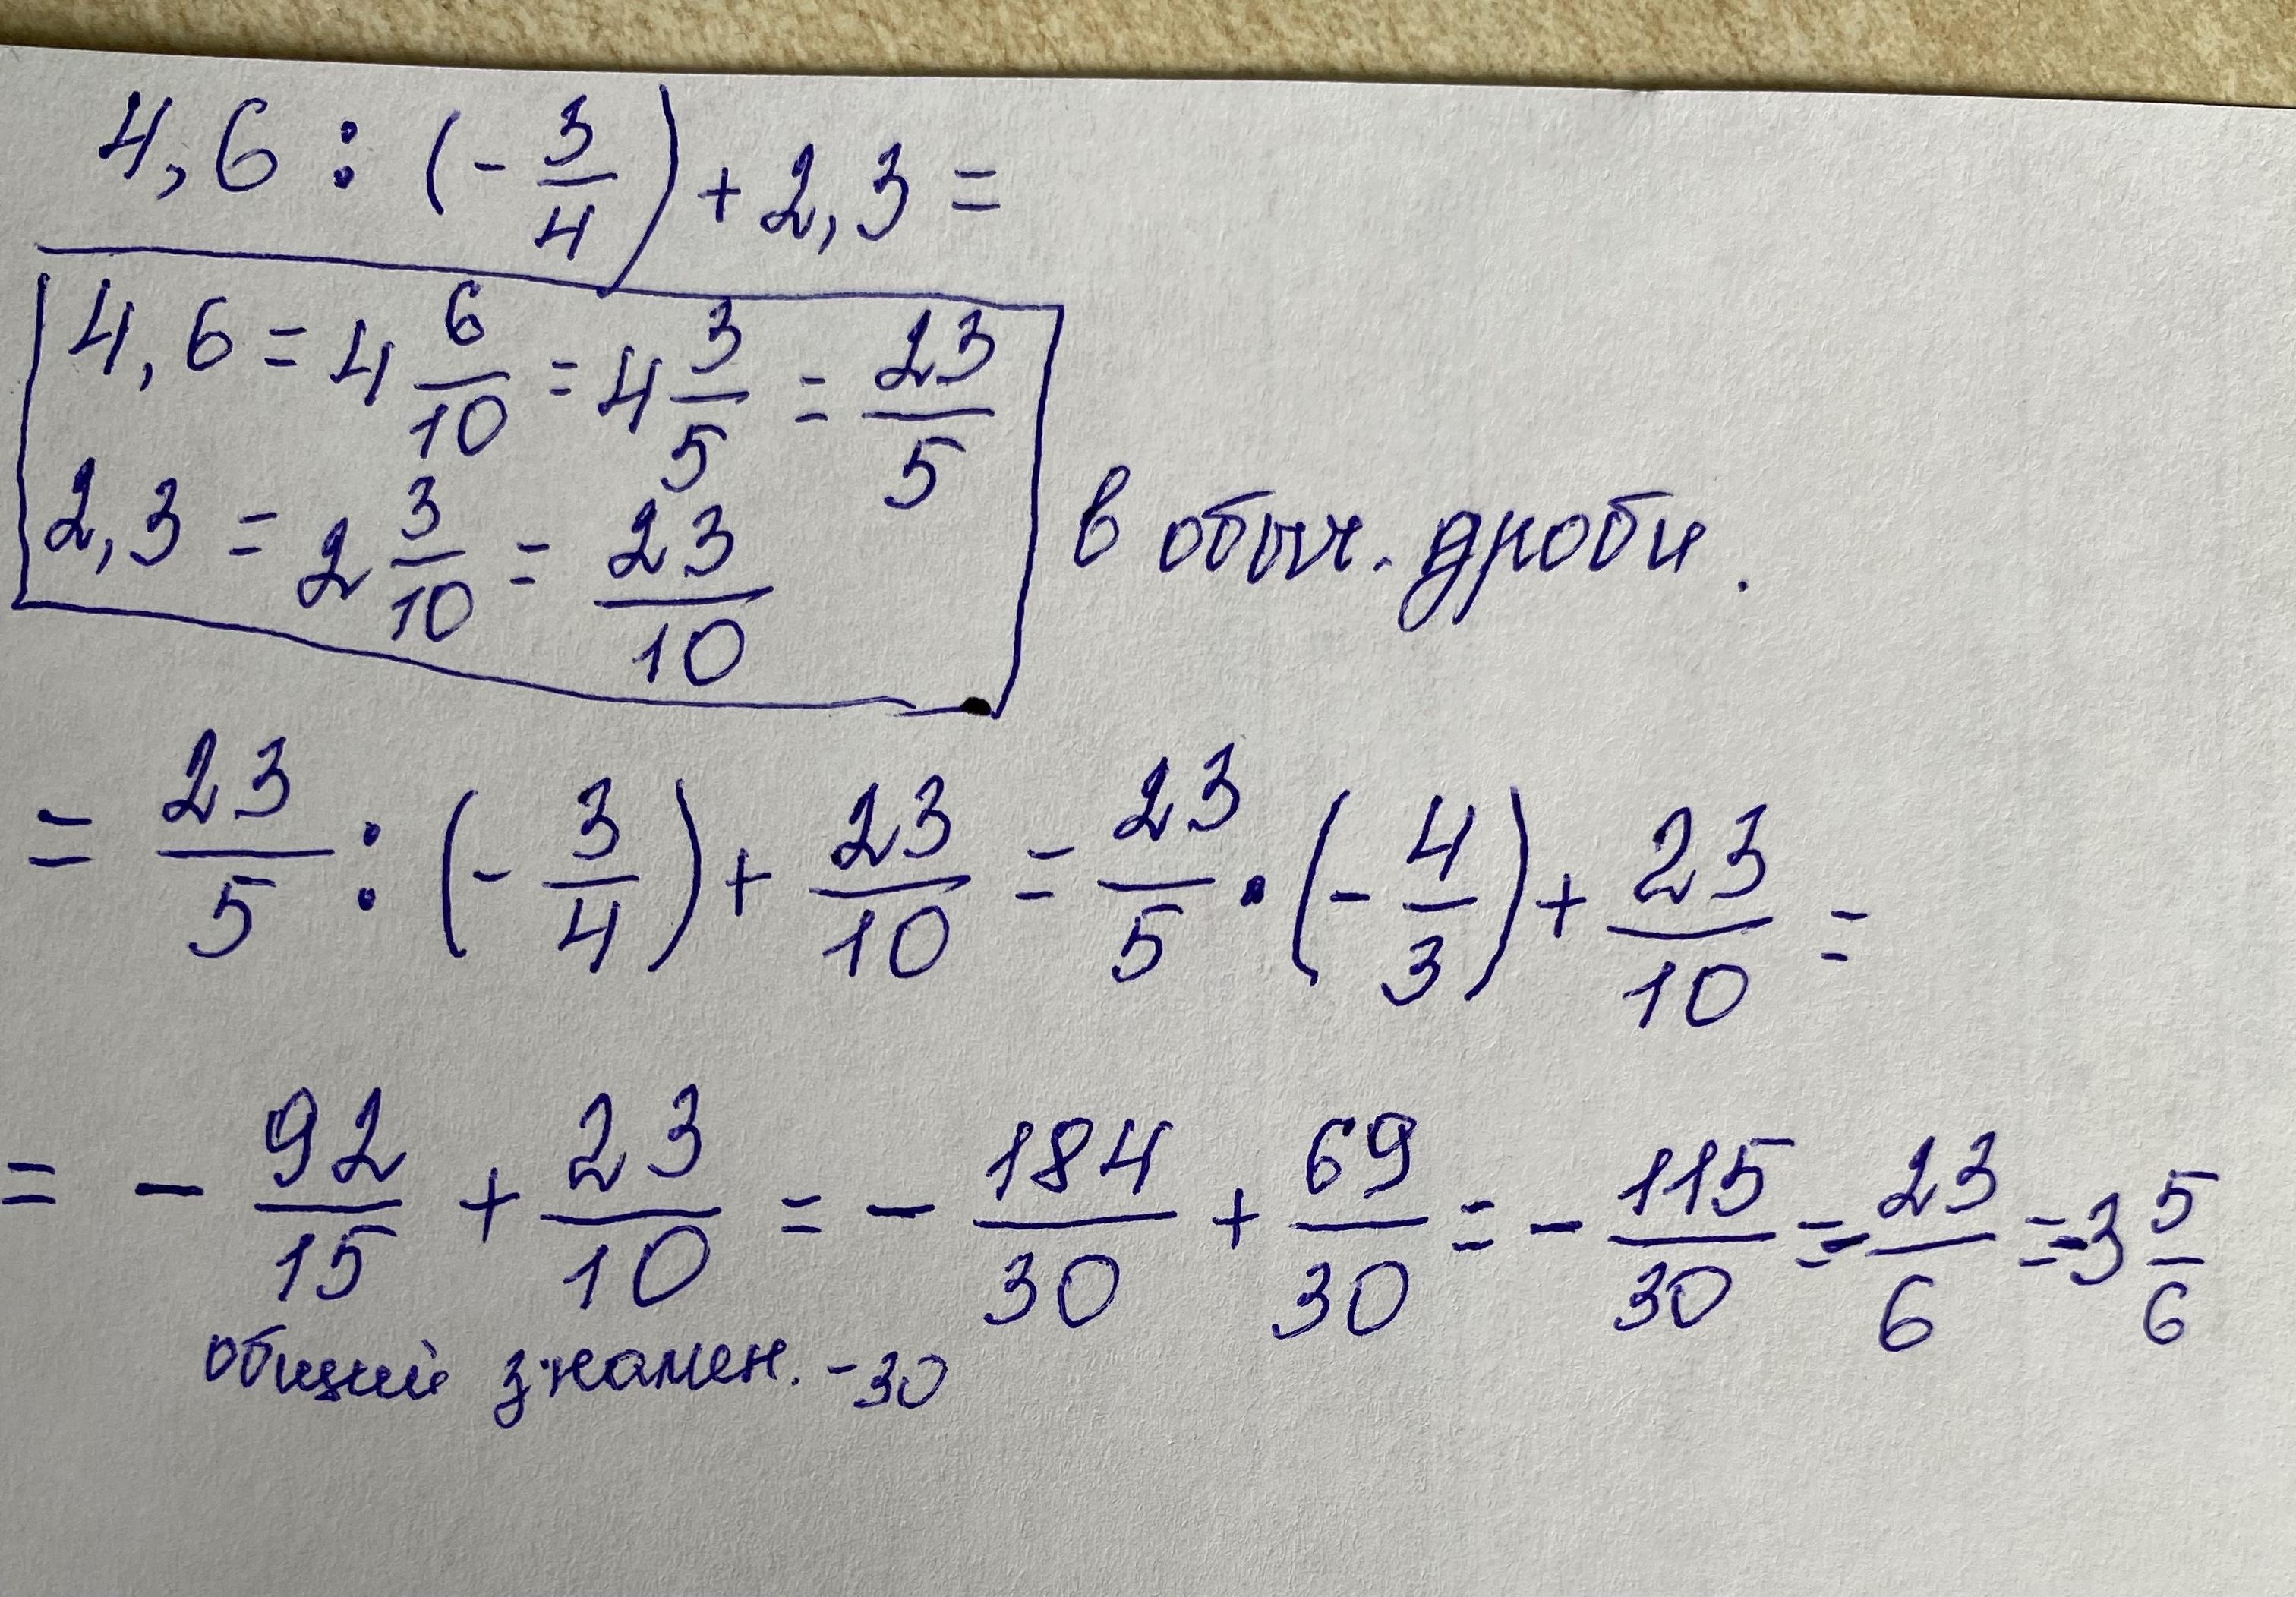 4,6 : (- 3/4) + 2,3 =
4,6 = 4 6/10 = 4 3/5 = 23/5
2,3 = 2 3/10 = 23/10 в обыч. дроби.
= 23/5 : (- 3/4) + 23/10 = 23/5 · (- 4/3) + 23/10 =
= - 92/15 + 23/10 = - 184/30 + 69/30 = - 115/30 = - 23/6 = -3 5/6
общий знамен. -30